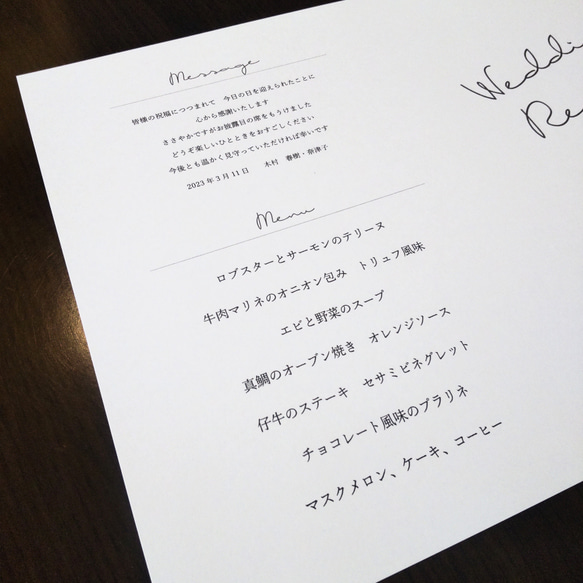 Message
皆様の祝福につつまれて　今日の日を迎えられたことに
心から感謝いたします
ささやかですがお披露目の席をもうけました
どうぞ楽しいひとときをおすごしください
今後とも温かく見守っていただければ幸いです
2023年3月11日　　木村　春樹・奈津子
Menu
ロブスターとサーモンのテリーヌ
牛肉マリネのオニオン包み　トリュフ風味
エビと野菜のスープ
真鯛のオーブン焼き　オレンジソース
仔牛のステーキ　セサミビネグレット
チョコレート風味のプラリネ
マスクメロン、ケーキ、コーヒー
Weddi
Re